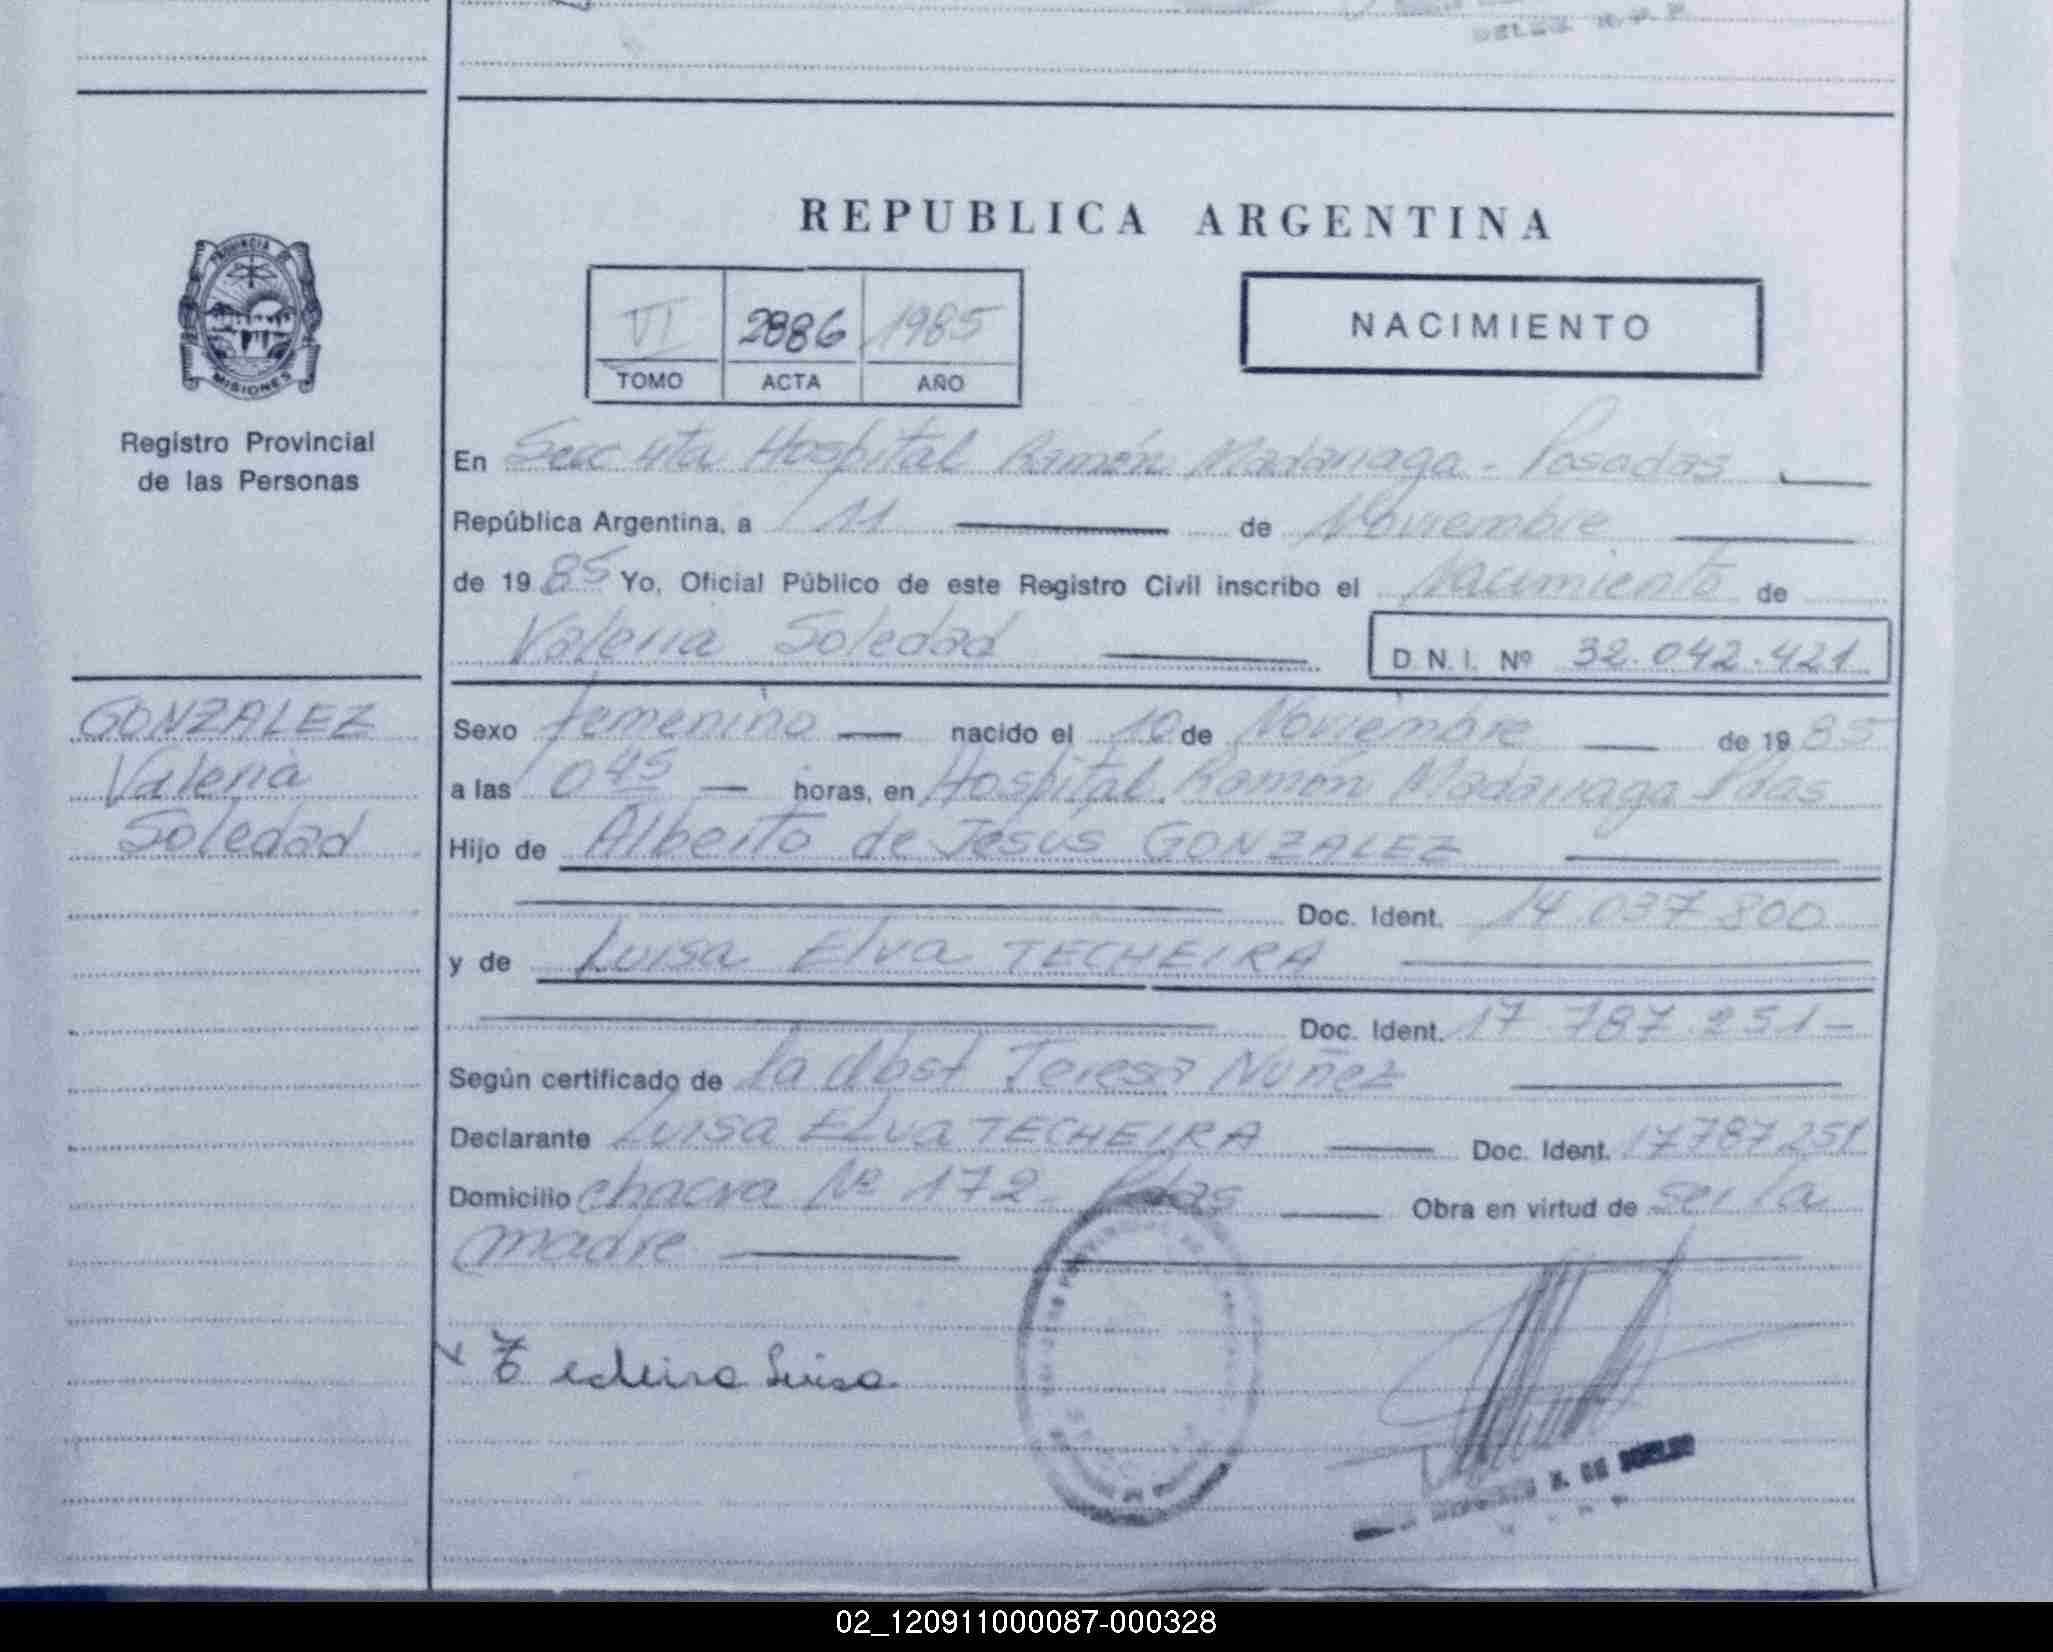 DELEG. R.P.P.
REPUBLICA ARGENTINA
PROVINCIA DE
MISIONES
VI 2886 1985
TOMO ACTA AÑO
NACIMIENTO
Registro Provincial
de las Personas
En Secc 4ta Hospital Ramón Madariaga - Posadas
República Argentina, a 11 de Noviembre
de 1985 Yo, Oficial Público de este Registro Civil inscribo el Nacimiento de
Valeria Soledad D.N.I. Nº 32.042.421
GONZALEZ
Valeria
Soledad
Sexo femenino nacido el 10 de Noviembre de 1985
a las 0 45 horas, en Hospital Ramón Madariaga Pdas
Hijo de Alberto de Jesús GONZALEZ
Doc. Ident. 14 037 800
y de Luisa Elva TECHEIRA
Doc. Ident. 17 787 251 -
Según certificado de la Obst Teresa Nuñez
Declarante Luisa Elva TECHEIRA Doc. Ident. 17787251
Domicilio chacra Nº 172 - Pdas Obra en virtud de ser la
madre
x Techeira Luisa
02_120911000087-000328